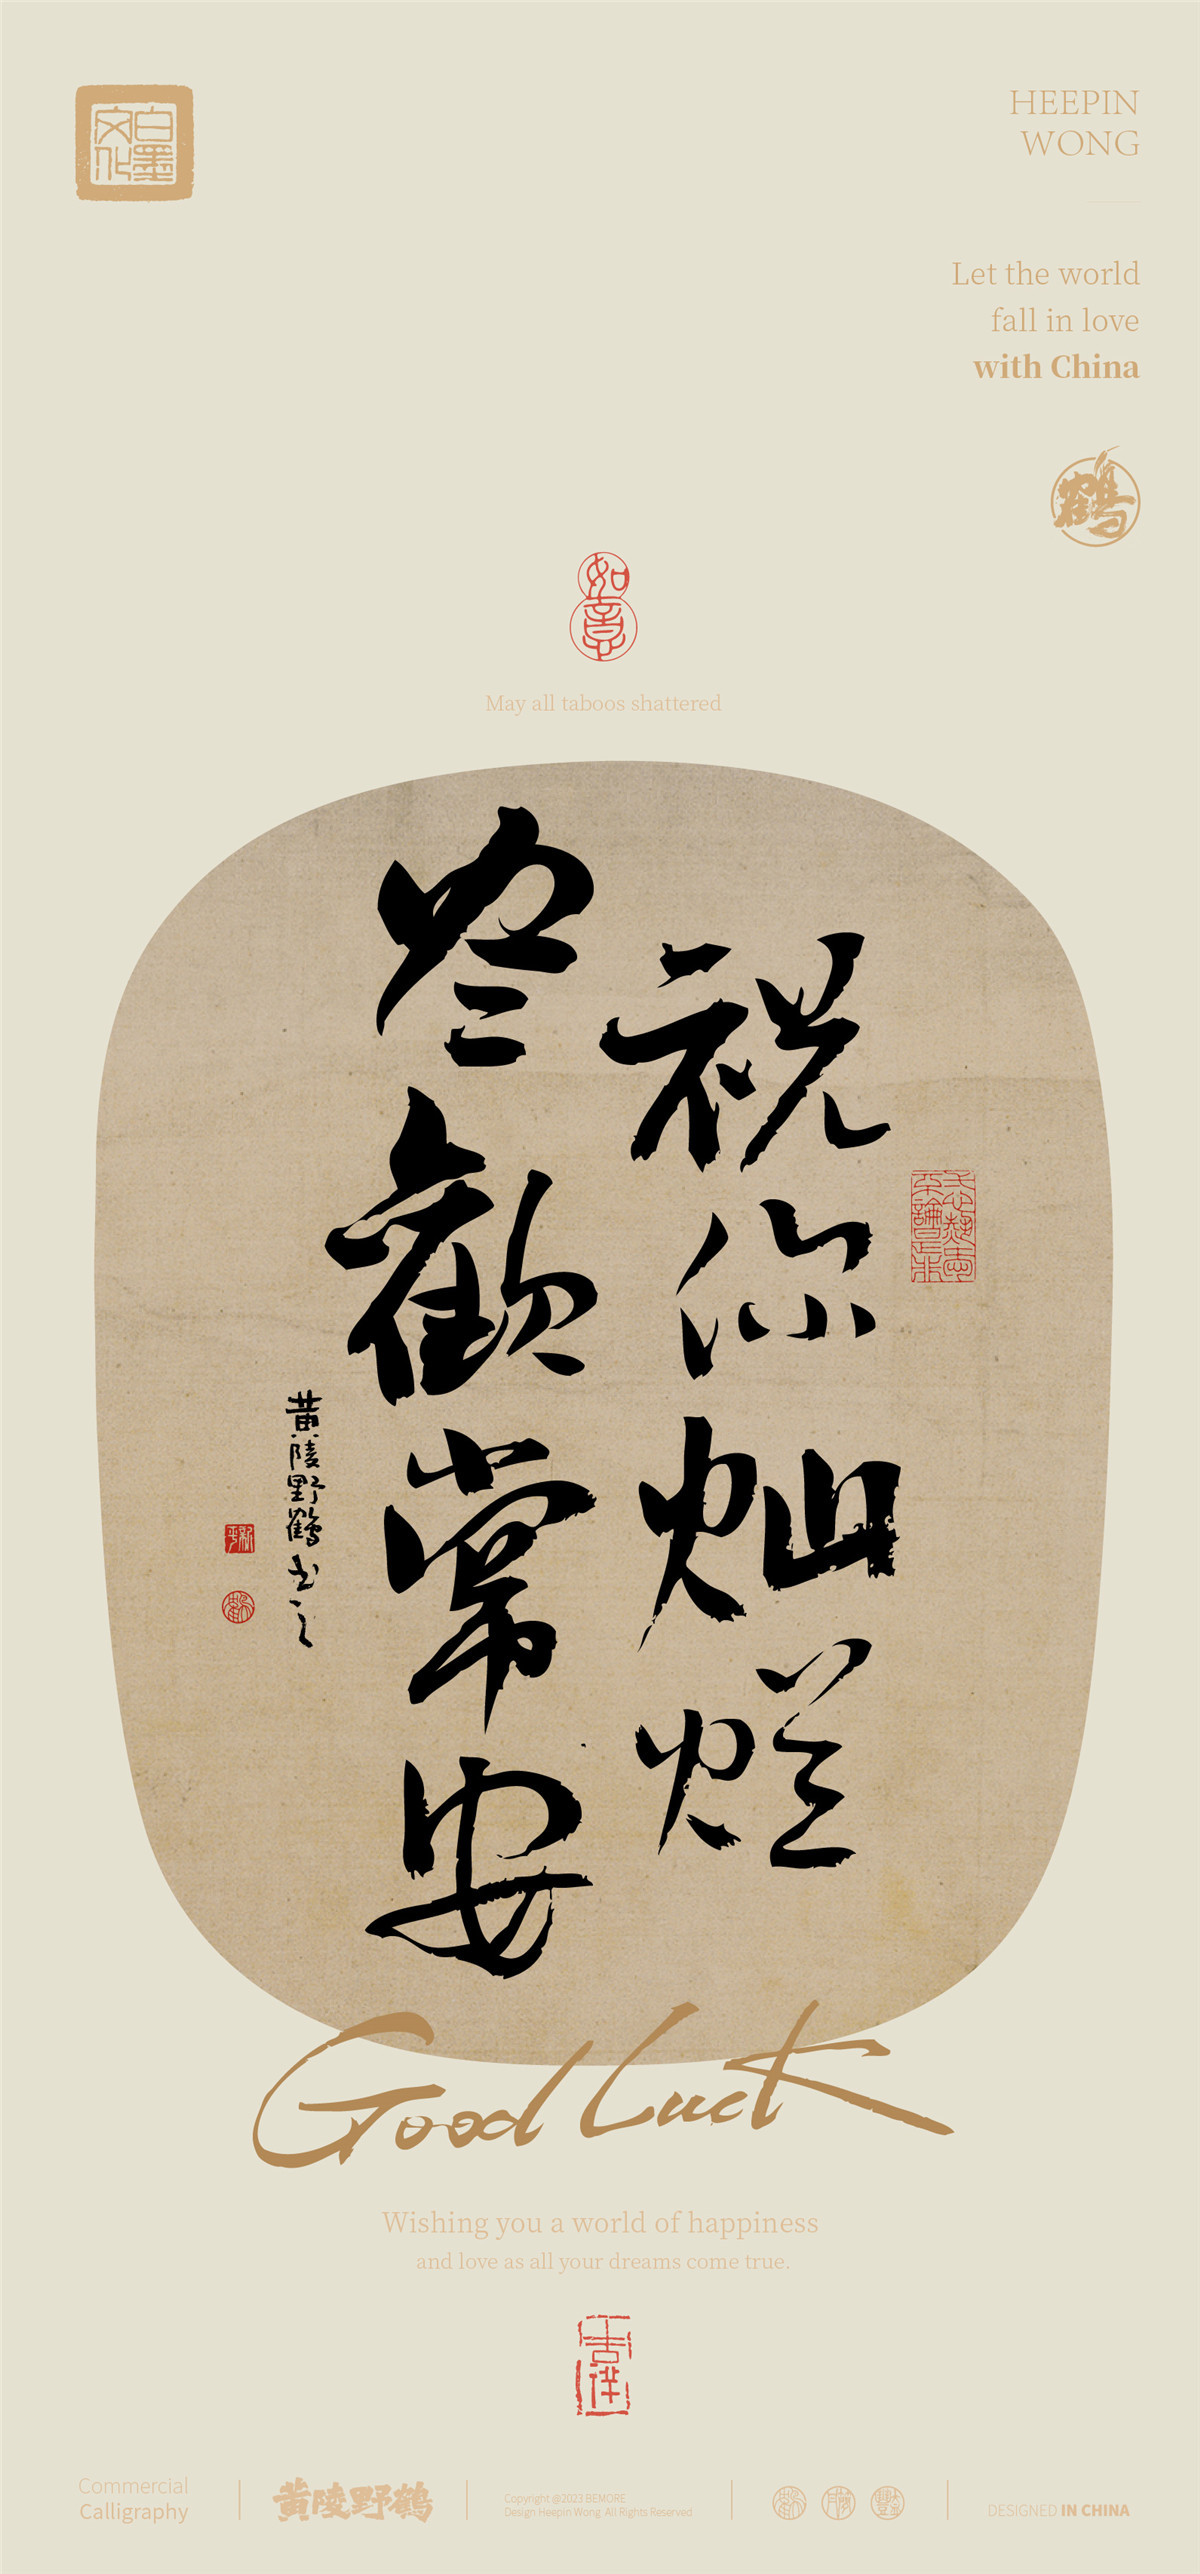 白墨文化
HEEPIN
WONG
Let the world
fall in love
with China
鹤
如意
May all taboos shattered
祝你灿烂
尽欢常安
黄陵野鹤书之
Good Luck
Wishing you a world of happiness
and love as all your dreams come true.
吉祥
Commercial
Calligraphy
黄陵野鹤
Copyright @2023 BEMORE
Design Heepin Wong. All Rights Reserved
DESIGNED IN CHINA